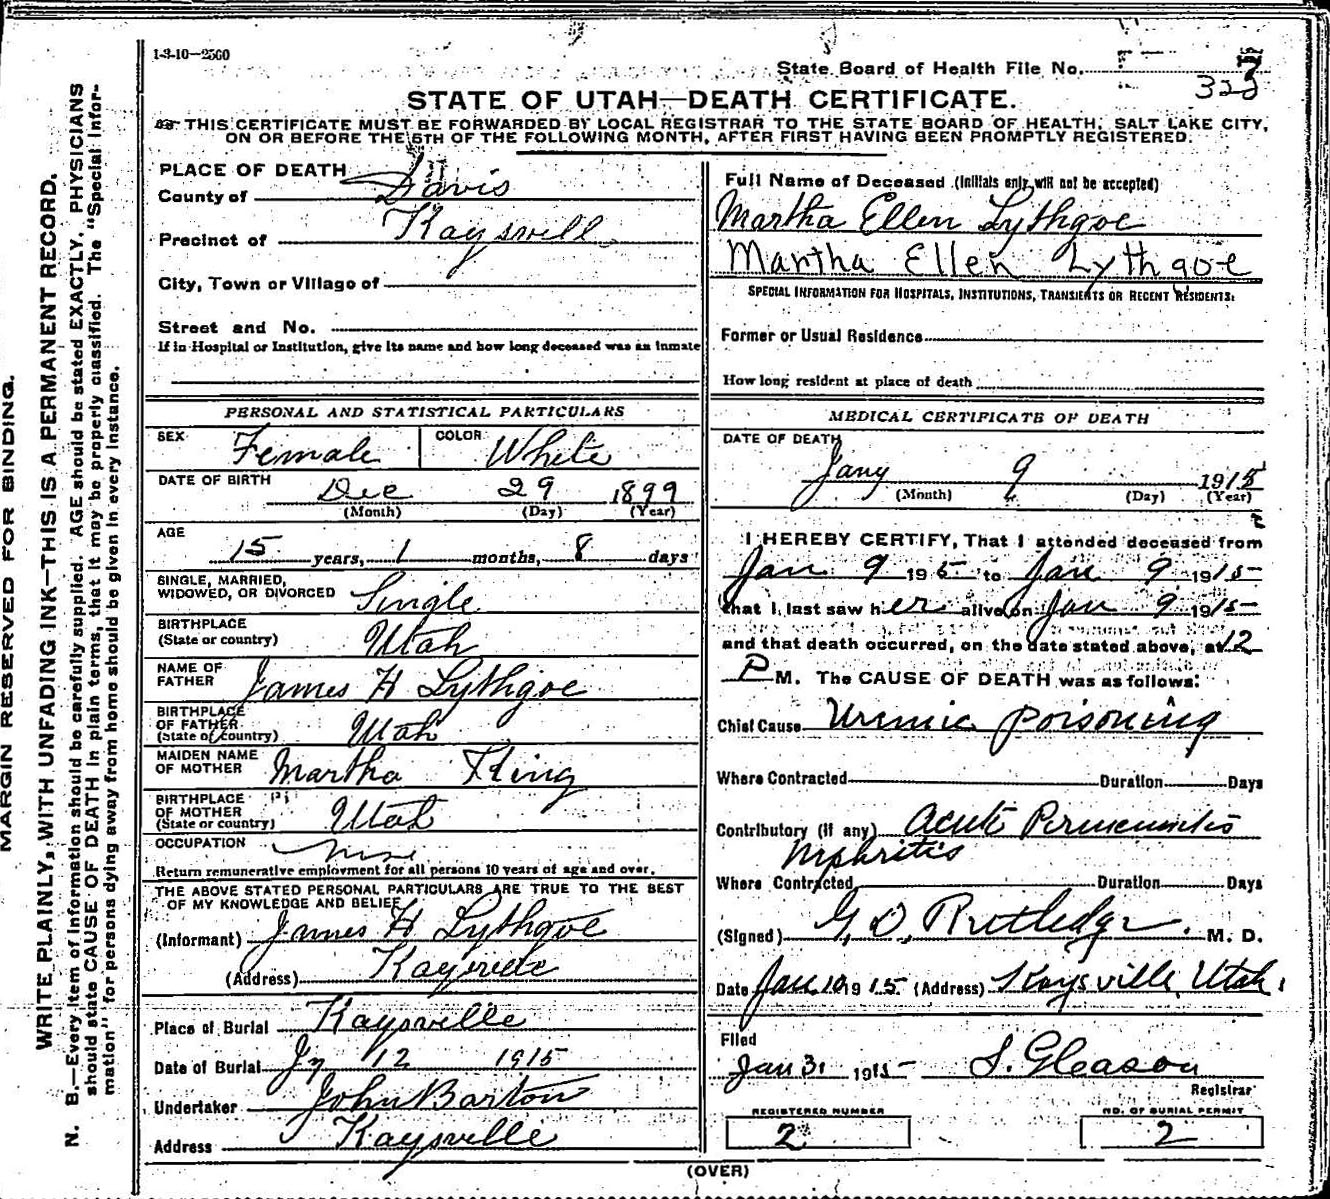 1-3-10—2560
State Board of Health File No.
323
STATE OF UTAH—DEATH CERTIFICATE.
THIS CERTIFICATE MUST BE FORWARDED BY LOCAL REGISTRAR TO THE STATE BOARD OF HEALTH, SALT LAKE CITY,
ON OR BEFORE THE 5TH OF THE FOLLOWING MONTH, AFTER FIRST HAVING BEEN PROMPTLY REGISTERED.
MARGIN RESERVED FOR BINDING.
WRITE PLAINLY, WITH UNFADING INK—THIS IS A PERMANENT RECORD.
N. B.—Every item of information should be carefully supplied. AGE should be stated EXACTLY, PHYSICIANS
should state CAUSE OF DEATH in plain terms, that it may be properly classified. The "Special Infor-
mation" for persons dying away from home should be given in every instance.
PLACE OF DEATH
County of Davis
Precinct of Kaysvill
City, Town or Village of
Street and No.
If in Hospital or Institution, give its name and how long deceased was an inmate
Full Name of Deceased (Initials only will not be accepted)
Martha Ellen Lythgoe
Martha Ellen Lythgoe
SPECIAL INFORMATION FOR HOSPITALS, INSTITUTIONS, TRANSIENTS OR RECENT RESIDENTS:
Former or Usual Residence
How long resident at place of death
PERSONAL AND STATISTICAL PARTICULARS
SEX Female COLOR White
DATE OF BIRTH Dec 29 1899
(Month) (Day) (Year)
AGE
15 years, 1 months, 8 days
SINGLE, MARRIED,
WIDOWED, OR DIVORCED Single
BIRTHPLACE
(State or country) Utah
NAME OF
FATHER James H Lythgoe
BIRTHPLACE
OF FATHER
(State or country) Utah
MAIDEN NAME
OF MOTHER Martha King
BIRTHPLACE
OF MOTHER
(State or country) Utah
OCCUPATION
Return remunerative employment for all persons 10 years of age and over.
THE ABOVE STATED PERSONAL PARTICULARS ARE TRUE TO THE BEST
OF MY KNOWLEDGE AND BELIEF
(Informant) James H Lythgoe
(Address) Kaysville
Place of Burial Kaysville
Date of Burial Jy 12 1915
Undertaker John Barton
Address Kaysville
MEDICAL CERTIFICATE OF DEATH
DATE OF DEATH
Jany 9 1915
(Month) (Day) (Year)
I HEREBY CERTIFY, That I attended deceased from
Jan 9 1915 to Jan 9 1915
that I last saw her alive on Jan 9 1915
and that death occurred, on the date stated above, at 12
P M. The CAUSE OF DEATH was as follows:
Chief Cause Uremic poisoning
Where Contracted Duration Days
Contributory (if any) Acute
Nephritis
Where Contracted Duration Days
(Signed) G. D. Rutledge. M. D.
Date Jan 10 1915 (Address) Kaysville Utah.
Filed
Jan 31 1915 S. Gleason
Registrar
REGISTERED NUMBER
2
NO. OF BURIAL PERMIT
2
(OVER)